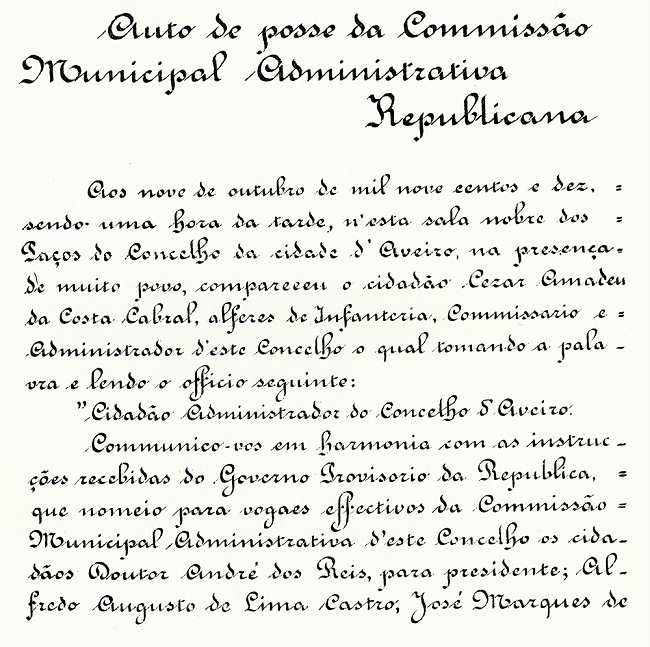 Auto de posse da Commissão
Municipal Administrativa
Republicana
Aos nove de outubro de mil nove centos e dez, =
sendo uma hora da tarde, n'esta sala nobre dos =
Paços do Concelho da cidade d'Aveiro, na presença
de muito povo, compareceu o cidadão Cezar Amadeu
da Costa Cabral, alferes de Infanteria, Commissario e =
Administrador d'este Concelho o qual tomando a pala -
vra e lendo o officio seguinte:
"Cidadão Administrador do Concelho d'Aveiro.
Communico-vos em harmonia com as instruc -
ções recebidas do Governo Provisorio da Republica, =
que nomeio para vogaes effectivos da Commissão =
Municipal Administrativa d'este Concelho os cida-
dãos Doutor André dos Reis, para presidente; Al-
fredo Augusto de Lima Castro; José Marques de